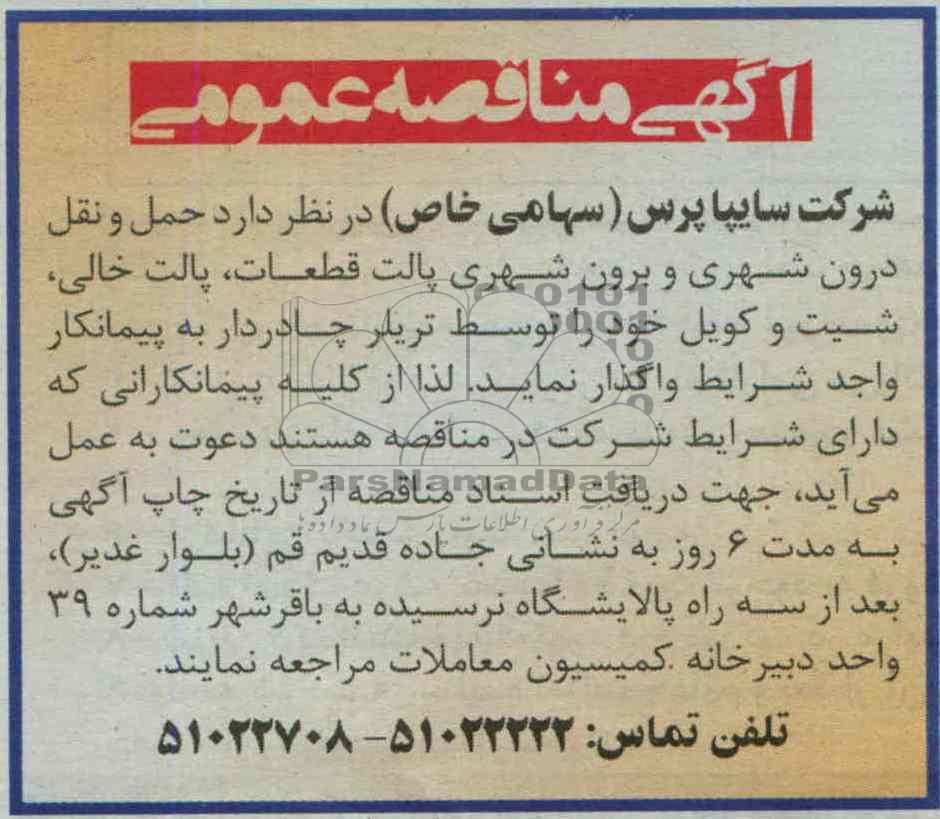 آگهی مناقصه عمومی
شرکت سایپا پرس (سهامی خاص) در نظر دارد حمل و نقل
درون شهری و برون شهری پالت قطعات، پالت خالی،
شیت و کویل خود را توسط تریلر چادردار به پیمانکار
واجد شرایط واگذار نماید. لذا از کلیه پیمانکارانی که
دارای شرایط شرکت در مناقصه هستند دعوت به عمل
می‌آید، جهت دریافت اسناد مناقصه از تاریخ چاپ آگهی
به مدت ۶ روز به نشانی جاده قدیم قم (بلوار غدیر)،
بعد از سه راه پالایشگاه نرسیده به باقرشهر شماره ۳۹
واحد دبیرخانه کمیسیون معاملات مراجعه نمایند.
تلفن تماس: ۵۱۰۲۲۲۲۲- ۵۱۰۲۲۷۰۸
ParsNamadData
مرکز فرآوری اطلاعات پارس نماد داده ها